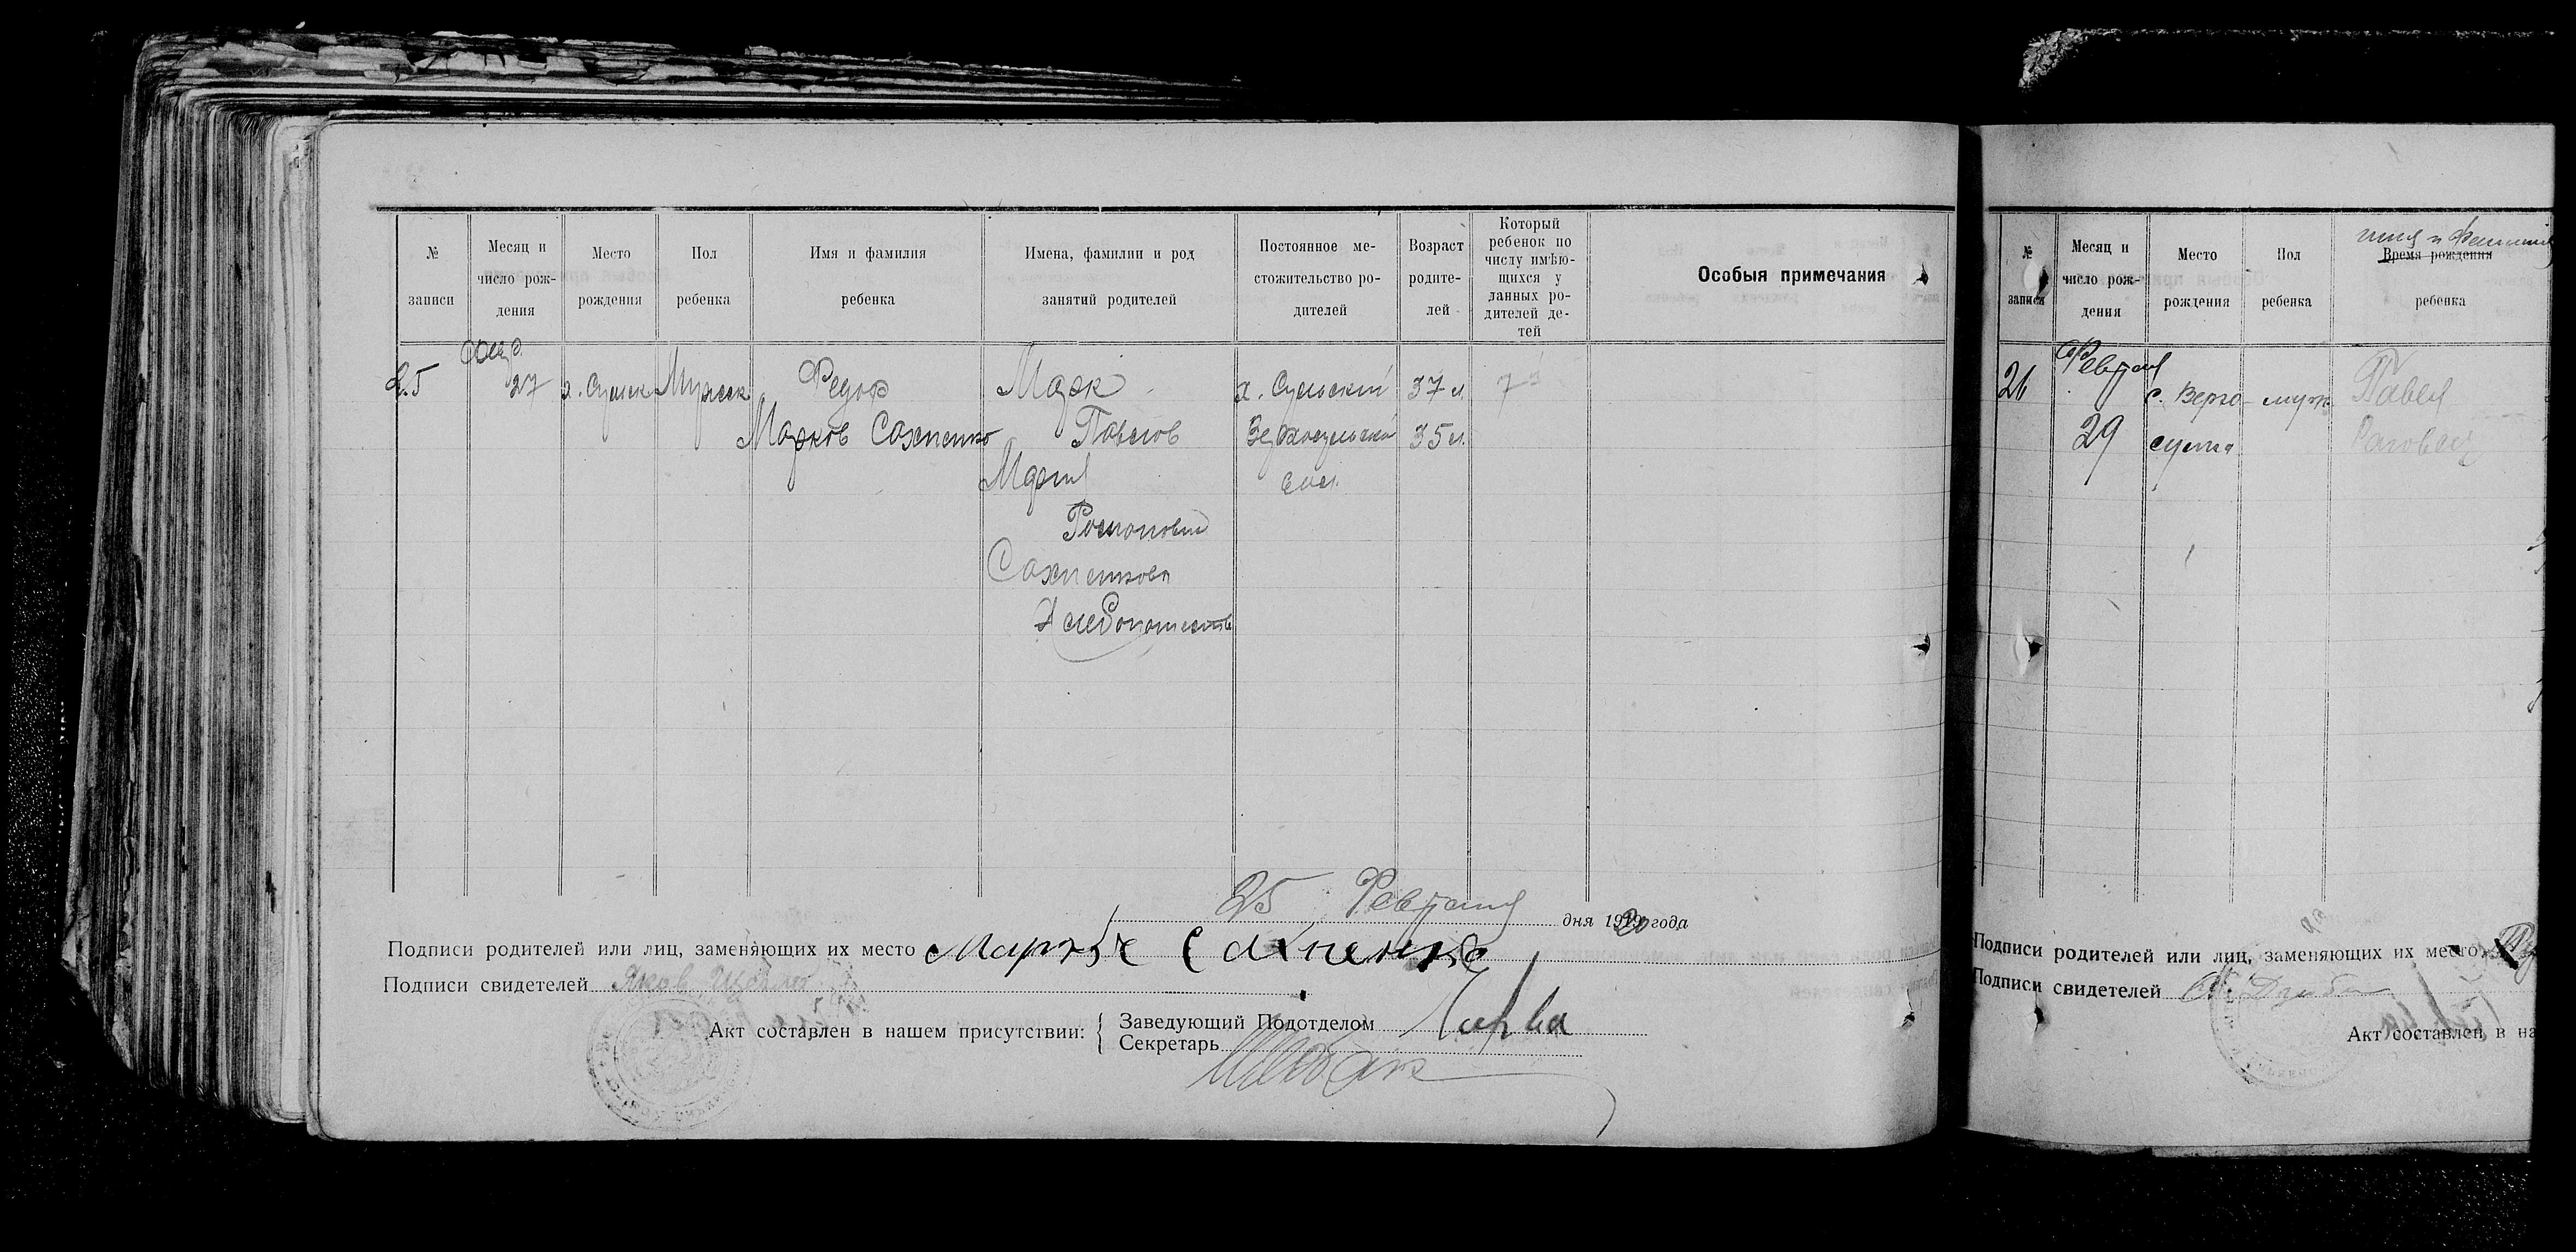 № записи
Месяц и число рож- дения
Место рождения
Пол ребенка
Имя и фамилия ребенка
Имена, фамилии и род занятий родителей
Постоянное ме- стожительство ро- дителей
Возраст родите- лей
Который ребенок по числу имѣю- щихся у данных ро- дителей де- тей
Особыя примечания
25
27
Мужск
Федор
Марков Сахненко
Марк
Павлов
Мария
Романовна
Сахненкова
Хлебопашество
х. Сульский
Верхосульской
вол.
37 л
35 л.
7й
25 Февраля дня 1920 года
Подписи родителей или лиц, заменяющих их место Маркъ Сахненко
Подписи свидетелей Яков
Акт составлен в нашем присутствии:
Заведующий Подотделом
Секретарь
№ записи
Месяц и число рож- дения
Место рождения
Пол ребенка
имя и Фамилия
Время рождения
ребенка
26
Февраля
29
с. Верхо
сулка
муж.
Павел
Подписи родителей или лиц, заменяющих их место
Подписи свидетелей
Акт составлен в на